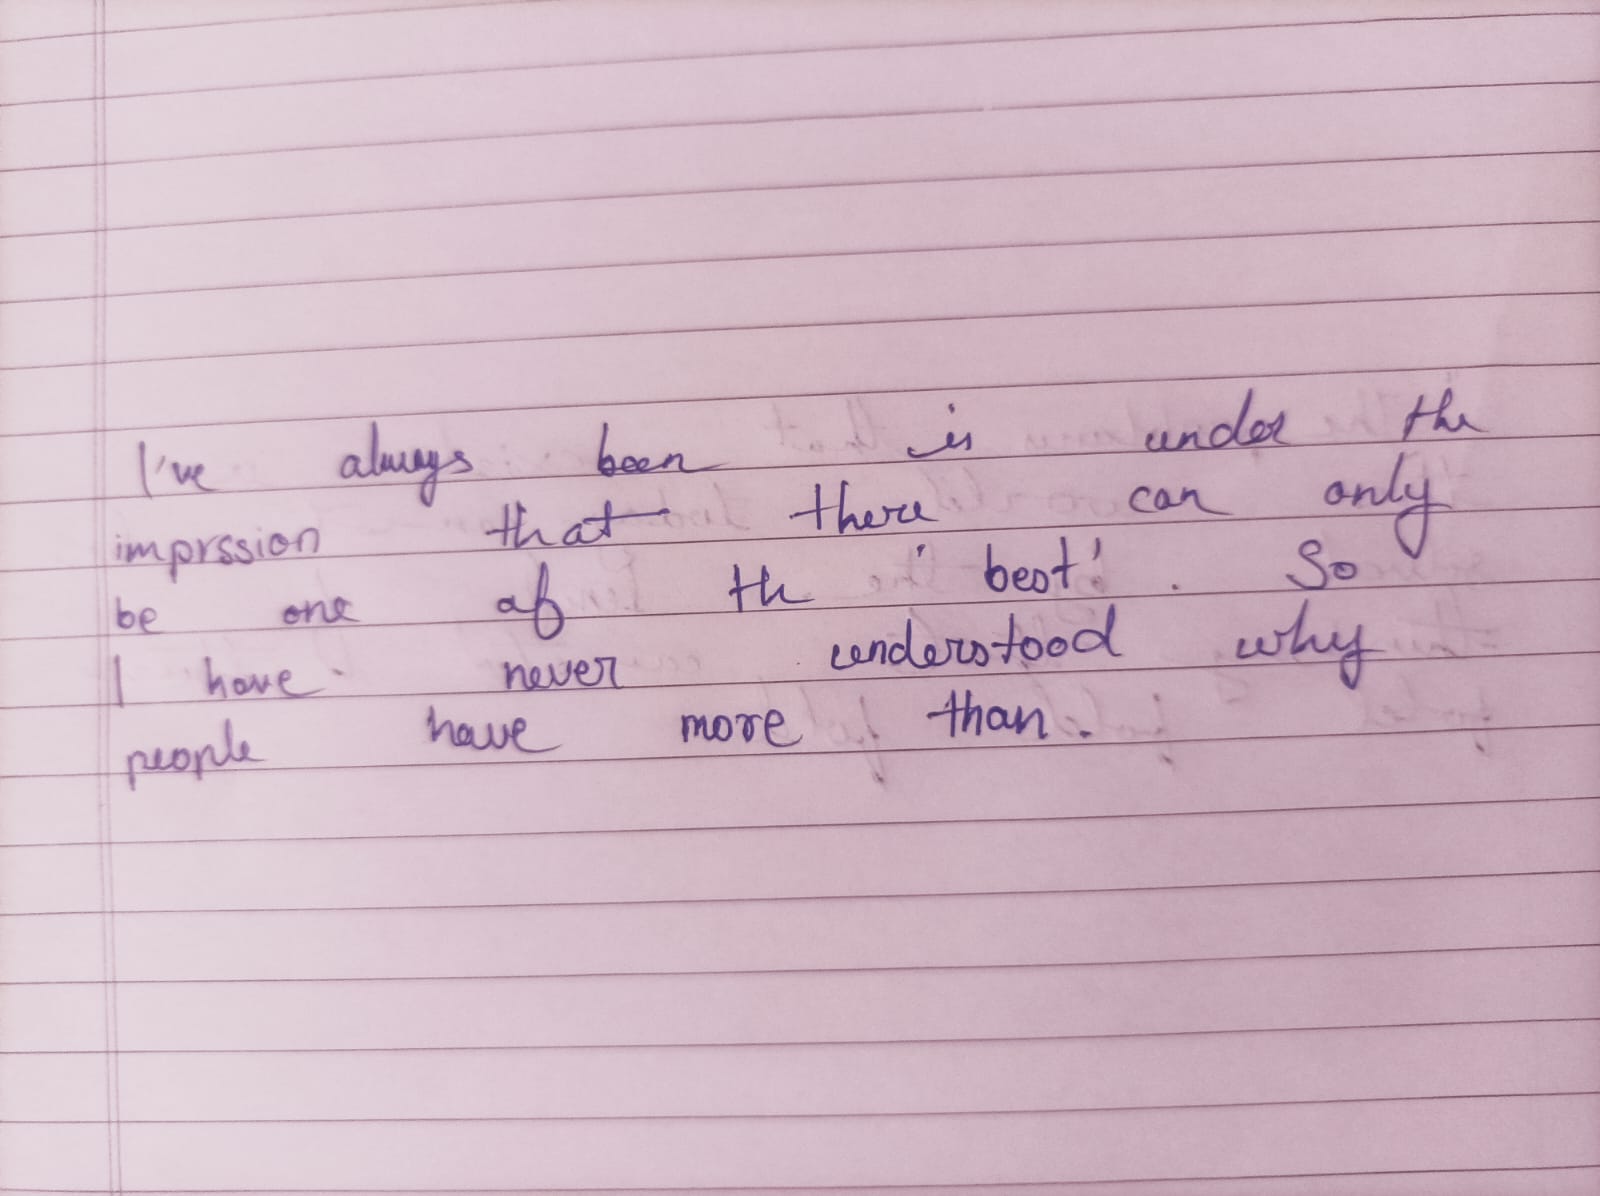 I've always been is under the
imprssion that there can only
be one of th 'best'. So
I have never understood why
people have more than.